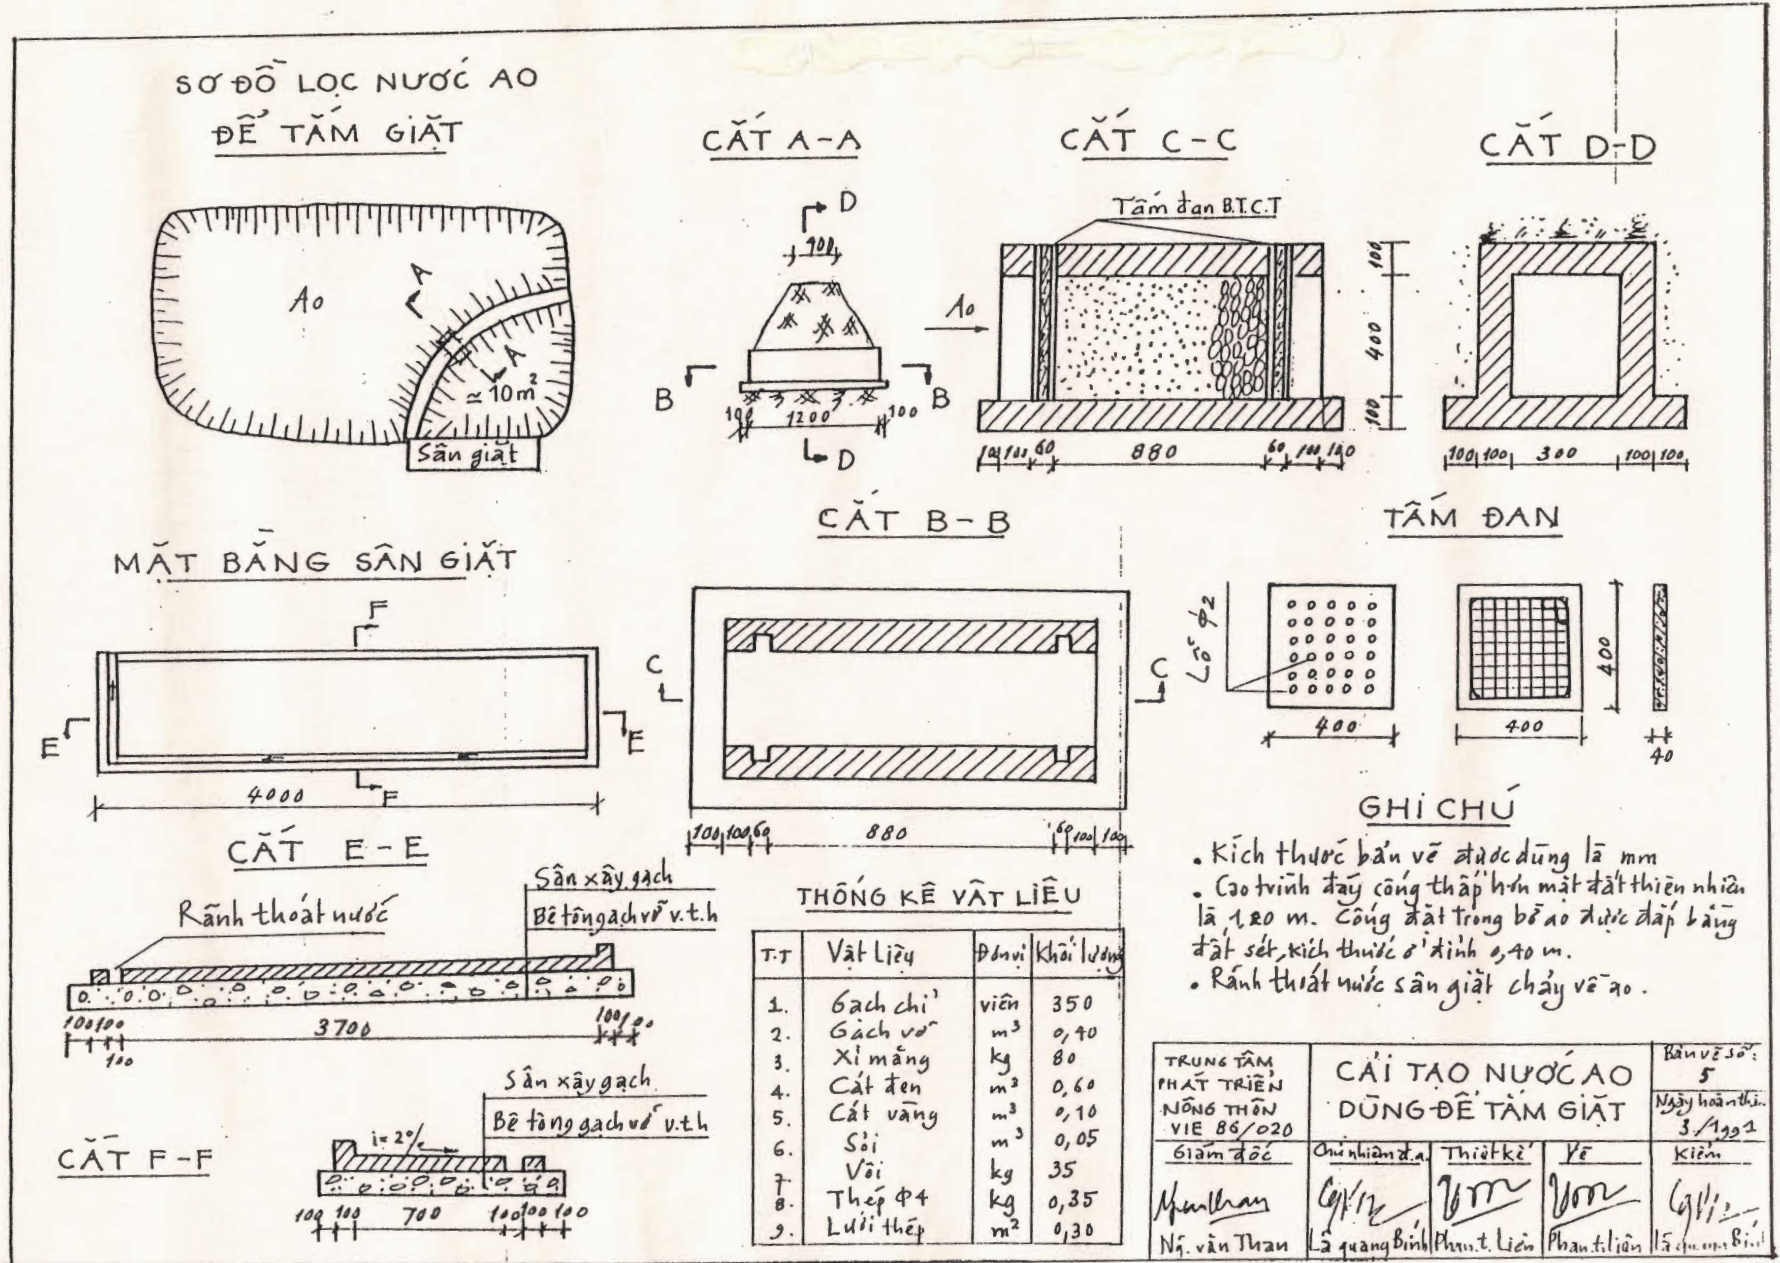 SƠ ĐỒ LỌC NƯỚC AO
ĐỂ TẮM GIẶT
Ao
A
A
≃ 10m²
Sân giặt
CẮT A-A
D
B
B
100
1200
100
D
CẮT C-C
Tấm đan B.T.C.T
Ao
100
400
100
100
100
60
880
60
100
100
CẮT D-D
100
100
300
100
100
MẶT BẰNG SÂN GIẶT
F
E
E
F
4000
CẮT B-B
C
C
100
100
60
880
60
100
100
TẤM ĐAN
Lỗ φ2
400
400
400
40
CẮT E-E
Rãnh thoát nước
Sân xây gạch
Bê tông gạch vỡ v.t.h
100
100
100
3700
100
100
CẮT F-F
Sân xây gạch
Bê tông gạch vỡ v.t.h
i=2%
100
100
700
100
100
100
THỐNG KÊ VẬT LIỆU
T.T Vật liệu Đơn vị Khối lượng
1. Gạch chỉ viên 350
2. Gạch vỡ m³ 0,40
3. Xi măng kg 80
4. Cát đen m³ 0,60
5. Cát vàng m³ 0,10
6. Sỏi m³ 0,05
7. Vôi kg 35
8. Thép Φ4 kg 0,35
9. Lưới thép m² 0,30
GHI CHÚ
• Kích thước bản vẽ được dùng là mm
• Cao trình đáy cống thấp hơn mặt đất thiên nhiên
là 1,20 m. Cống đặt trong bờ ao được đắp bằng
đất sét, kích thước ở đỉnh 0,40 m.
• Rãnh thoát nước sân giặt chảy về ao.
TRUNG TÂM
PHÁT TRIỂN
NÔNG THÔN
VIE 86/020
CẢI TẠO NƯỚC AO
DÙNG ĐỂ TẮM GIẶT
Bản vẽ số:
5
Ngày hoàn th
3./1991
Giám đốc
Chủ nhiệm đ.a.
Thiết kế
Vẽ
Kiểm
Ng. văn Than
Lã quang Bính
Phan.t. Liên
Phan.t.liên